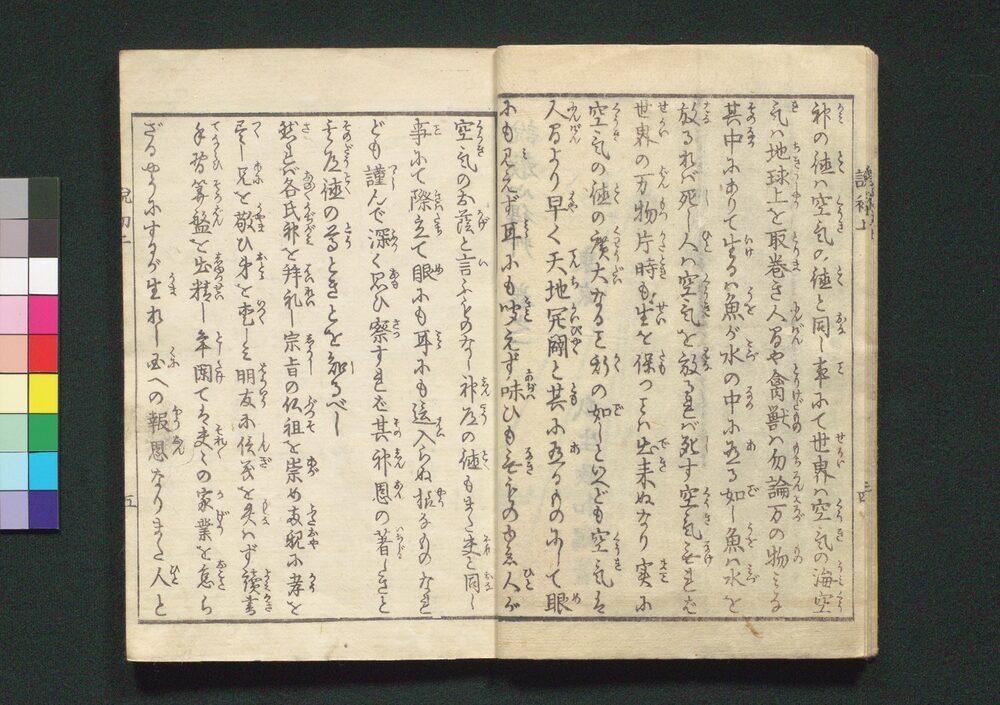 神の徳ハ空気の徳と同し事にて世界ハ空気の海空
気ハ地球上を取巻き人間や禽獣ハ勿論万の物ミな
其中にありて生るハ魚が水の中に在る如し魚ハ水を
放るれバ死し人ハ空気を放るれバ死す空気无れば
世界の万物片時も生を保つことハ出来ぬなり実に
空気の徳の廣大なること斯の如しといへども空気は
人間より早く天地開闢と其に在るものにして眼
にも見えず耳にも聞えず味ひも无きものゆゑ人が
空気のお蔭と言ふものなし神道の徳もまた夫と同し
事にて際立て眼にも耳にも這入らぬ拵なものなれ
ども謹んで深く思ひ察すれば其神恩の著しきと
其道徳の尊ときとを知るべし
然ば各氏神を拝礼し宗旨の仏祖を崇め両親に孝を
尽し兄を敬ひ弟を愛しミ朋友に信義を失はず讀書
手習算盤を出精し年闌てハ夫々の家業を怠ら
ざるやうにするが生れし国への報恩なりまた人と